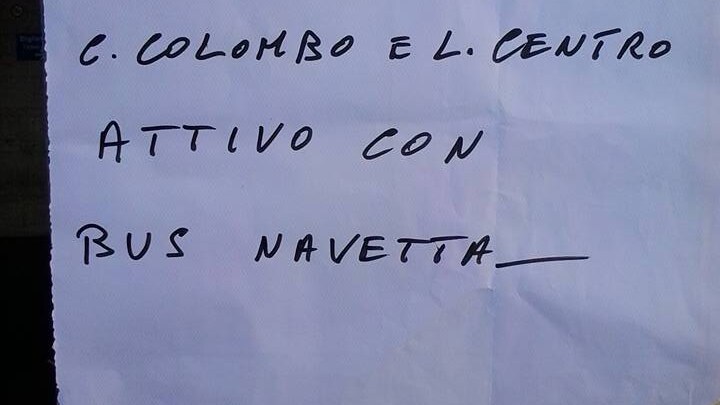 C. COLOMBO E L. CENTRO
ATTIVO CON
BUS NAVETTA